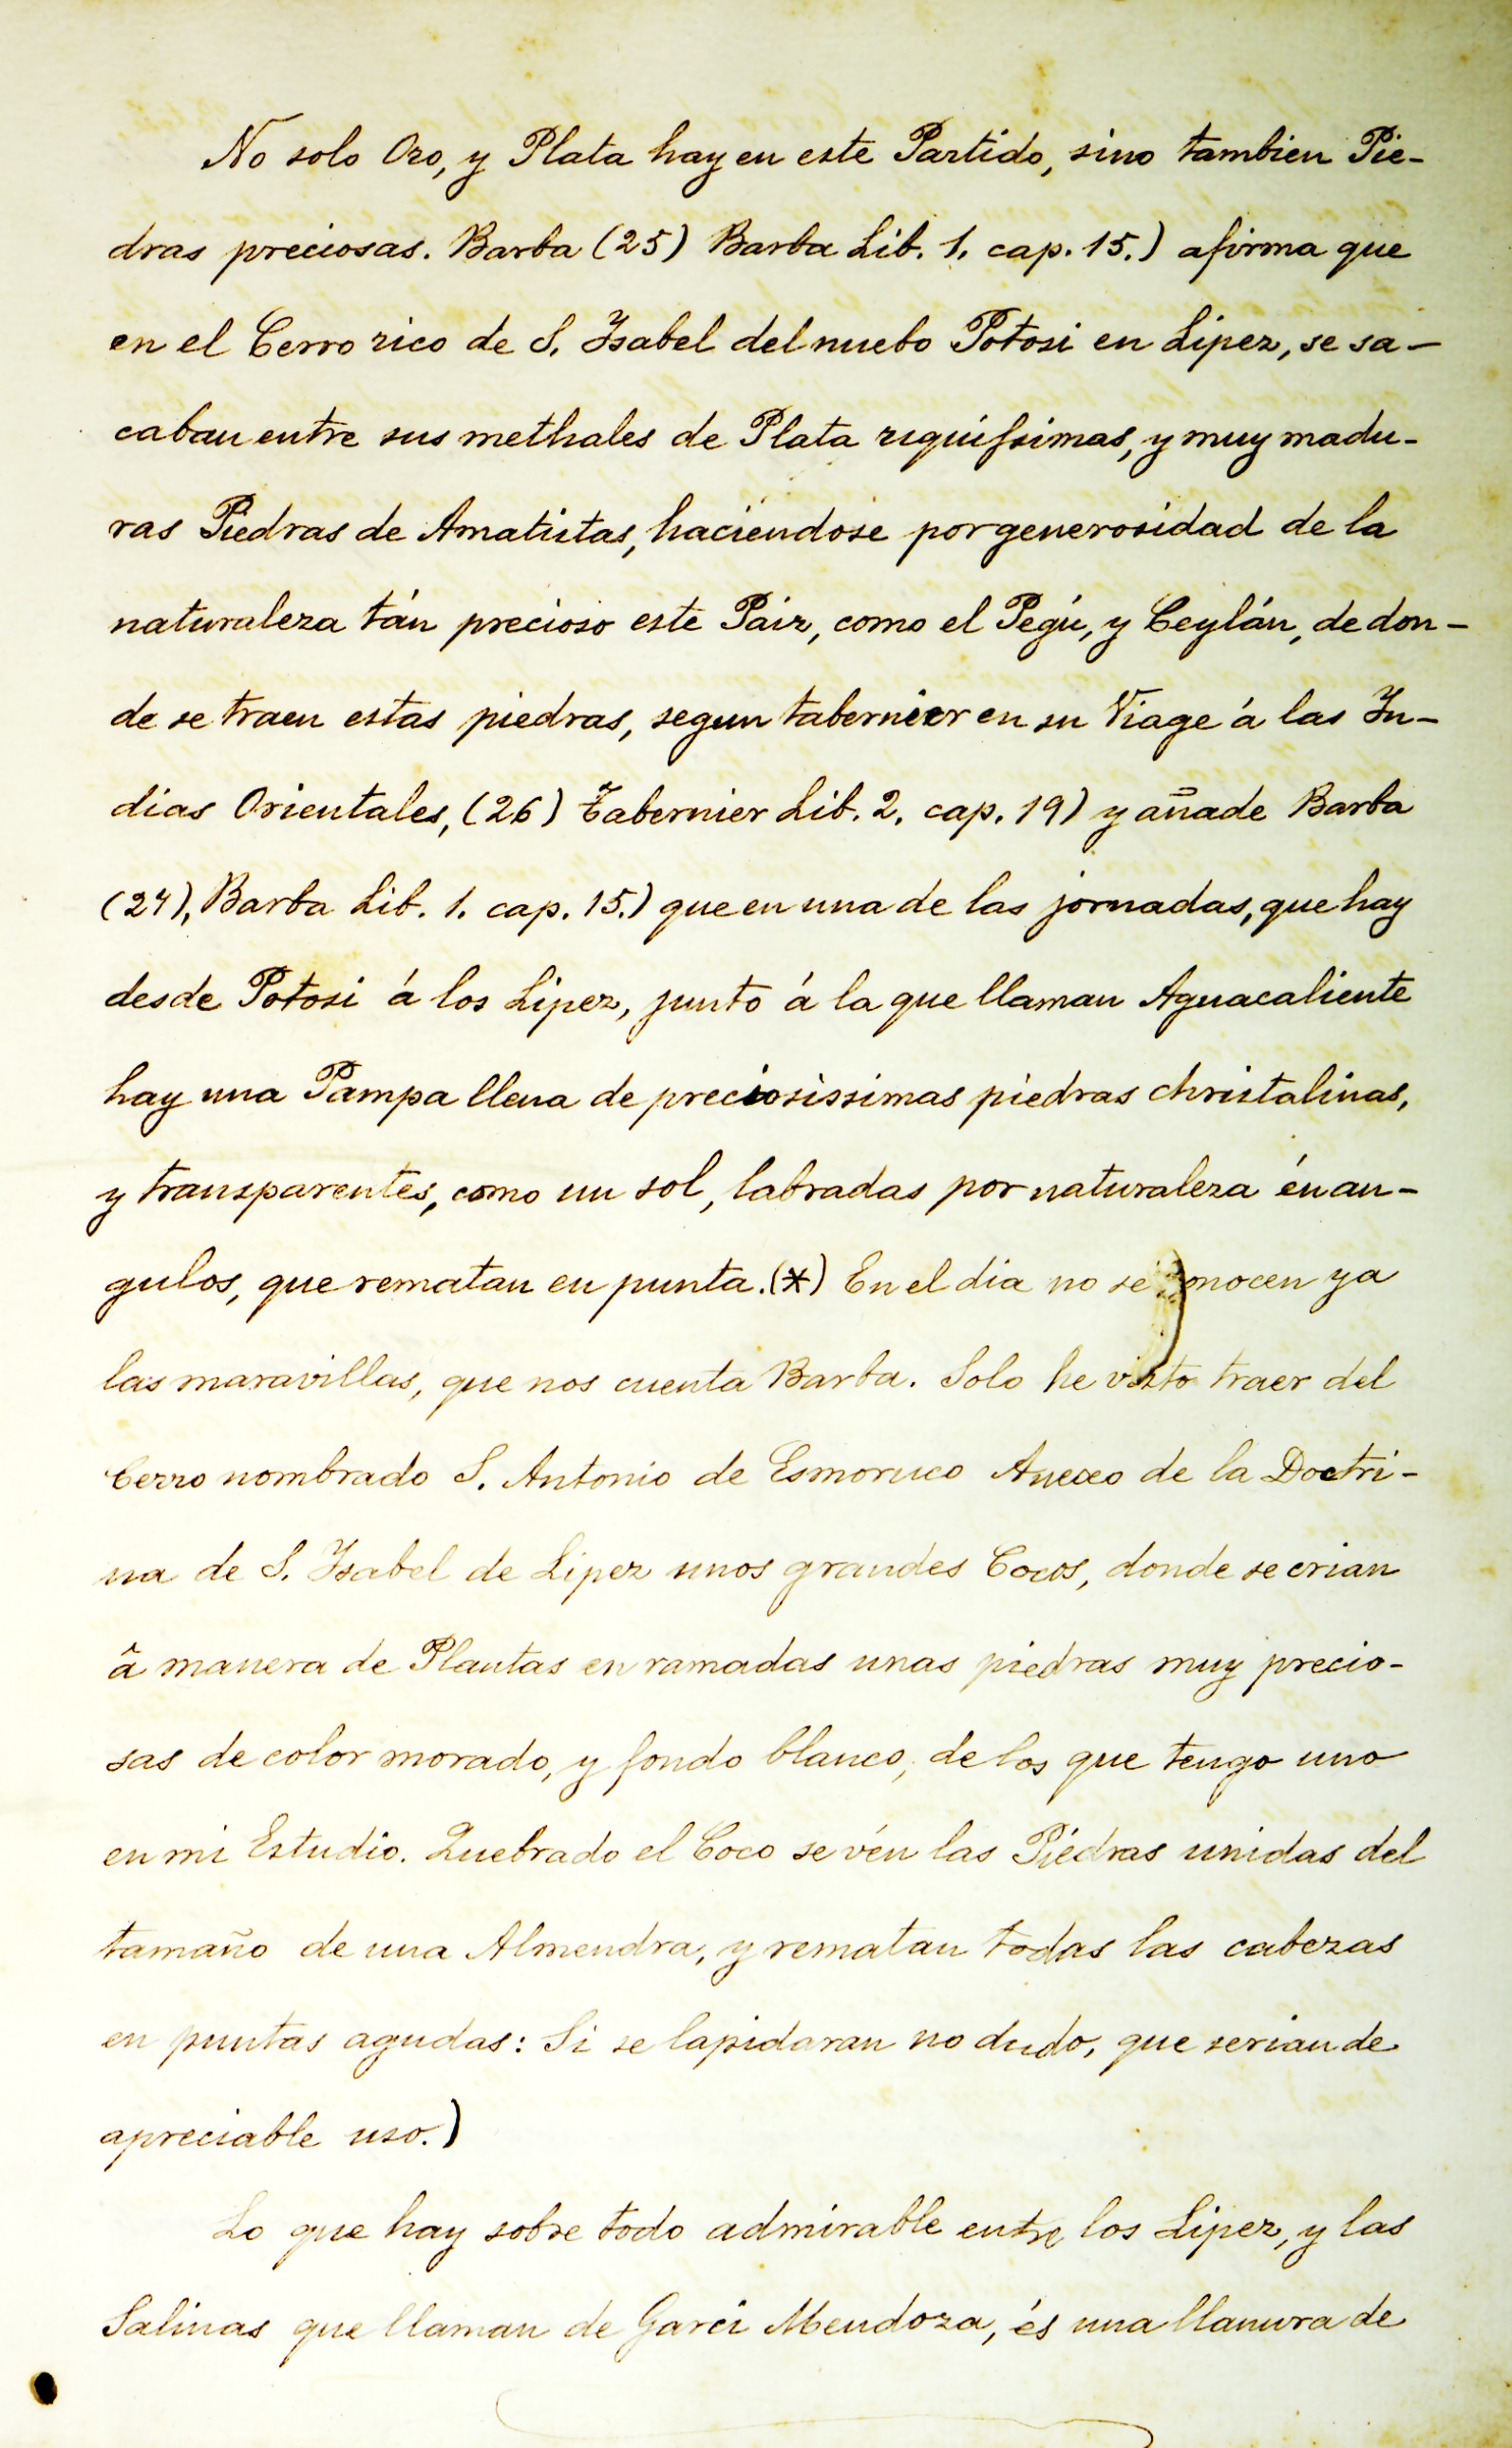 No solo Oro, y Plata hay en este Partido, sino tambien Pie-
dras preciosas. Barba (25) Barba Lib. 1. cap. 15.) afirma que
en el Cerro rico de S. Isabel del nuebo Potosi en Lipez, se sa-
caban entre sus methales de Plata riquissimas, y muy madu-
ras Piedras de Amatistas, haciendose por generosidad de la
naturaleza tán precioso este Paiz, como el Pegú, y Ceylán, de don-
de se traen estas piedras, segun tabernier en su Viage á las In-
dias Orientales, (26) Tabernier Lib. 2. cap. 19) y añade Barba
(27), Barba Lib. 1. cap. 15.) que en una de las jornadas, que hay
desde Potosi á los Lipez, junto á la que llaman Aguacaliente
hay una Pampa llena de preciosissimas piedras christalinas,
y transparentes, como un sol, labradas por naturaleza én an-
gulos, que rematan en punta. (*) En el dia no se conocen ya
las maravillas, que nos cuenta Barba. Solo he visto traer del
Cerro nombrado S. Antonio de Esmoruco Anexo de la Doctri-
na de S. Isabel de Lipez unos grandes Cocos, donde se crian
â manera de Plantas enramadas unas piedras muy precio-
sas de color morado, y fondo blanco, de los que tengo uno
en mi Estudio. Quebrado el Coco se vén las Piedras unidas del
tamaño de una Almendra, y rematan todas las cabezas
en puntas agudas: Si se lapidaran no dudo, que serian de
apreciable uso.)
Lo que hay sobre todo admirable entre los Lipez, y las
Salinas que llaman de Garci Mendoza, és una llanura de